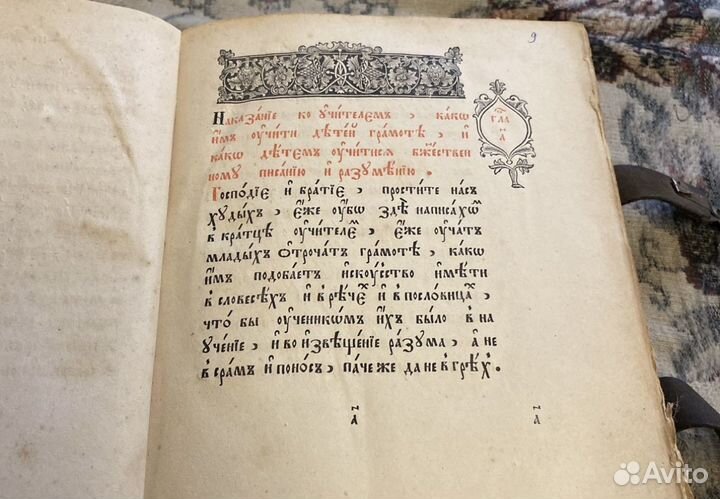 9
Наказа́нїе ко ᲂу҆чи́телємъ , ка́кѡ
и҆̀мъ ᲂу҆чи́ти дѣте́й гра́мотѣ , и҆̀
ка́кѡ дѣ́темъ ᲂу҆чи́тисѧ бж҃е́ствен
ному писа́нїю и҆̀ разꙋмѣ́нїю .
Госпо́дїе и҆̀ бра́тїе , прости́те на́съ
хꙋды́хъ , є҆́же ᲂу҆́бѡ здѣ̀ написа́хѡⷨ
в кра́тцѣ ᲂу҆чи́телєⷨ , є҆́же ᲂу҆ча́тъ
млады́хъ ѻ҆троча́тъ гра́мотѣ , ка́кѡ
и҆̀мъ подоба́етъ и҆скꙋ́сство и҆мѣ́ти
в словесѣ́хъ и҆̀ в рѣ́чеⷯ и҆̀ в посло́вицаⷯ ,
что́ бы ᲂу҆ченикѡ́мъ и҆́хъ бы́ло в на
ᲂу҆че́нїе , и҆̀ во и҆звѣще́нїе ра́зꙋма , а҆ не
в сра́мъ и҆̀ поно́съ , па́че же да не в грѣ́хъ .
ѿ
гла
а҃
а҃
а҃
Avito